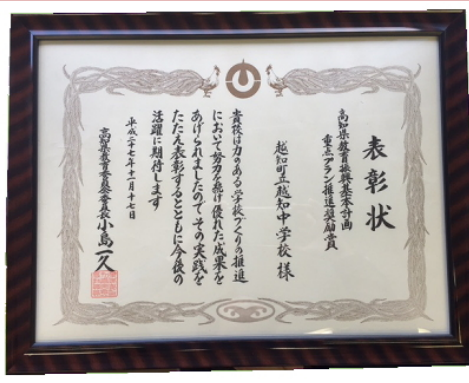 表彰状
高知県教育振興基本計画
重点プラン推進奨励賞
越知町立越知中学校 様
貴校は力のある学校づくりの推進
において努力を続け優れた成果を
あげられましたのでその実践を
たたえ表彰するとともに今後の
活躍に期待します
平成二十七年十一月十七日
高知県教育委員会委員長 小島一久